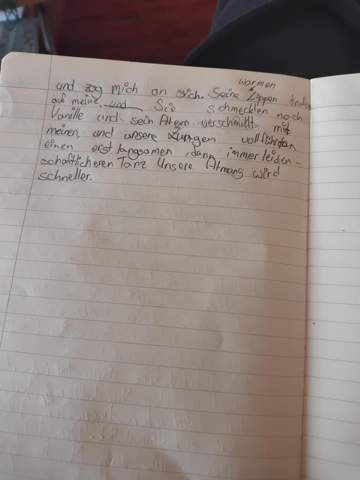 warmen
und zog mich an sich. Seine Lippen trafen
auf meine, und Sie schmeckten nach
Vanille und sein Atem verschmilzt mit
meinen und unsere Zungen vollführten
einen erst langsamen dann immer leiden-
schaftlicheren Tanz Unsere Atmung wird
schneller.